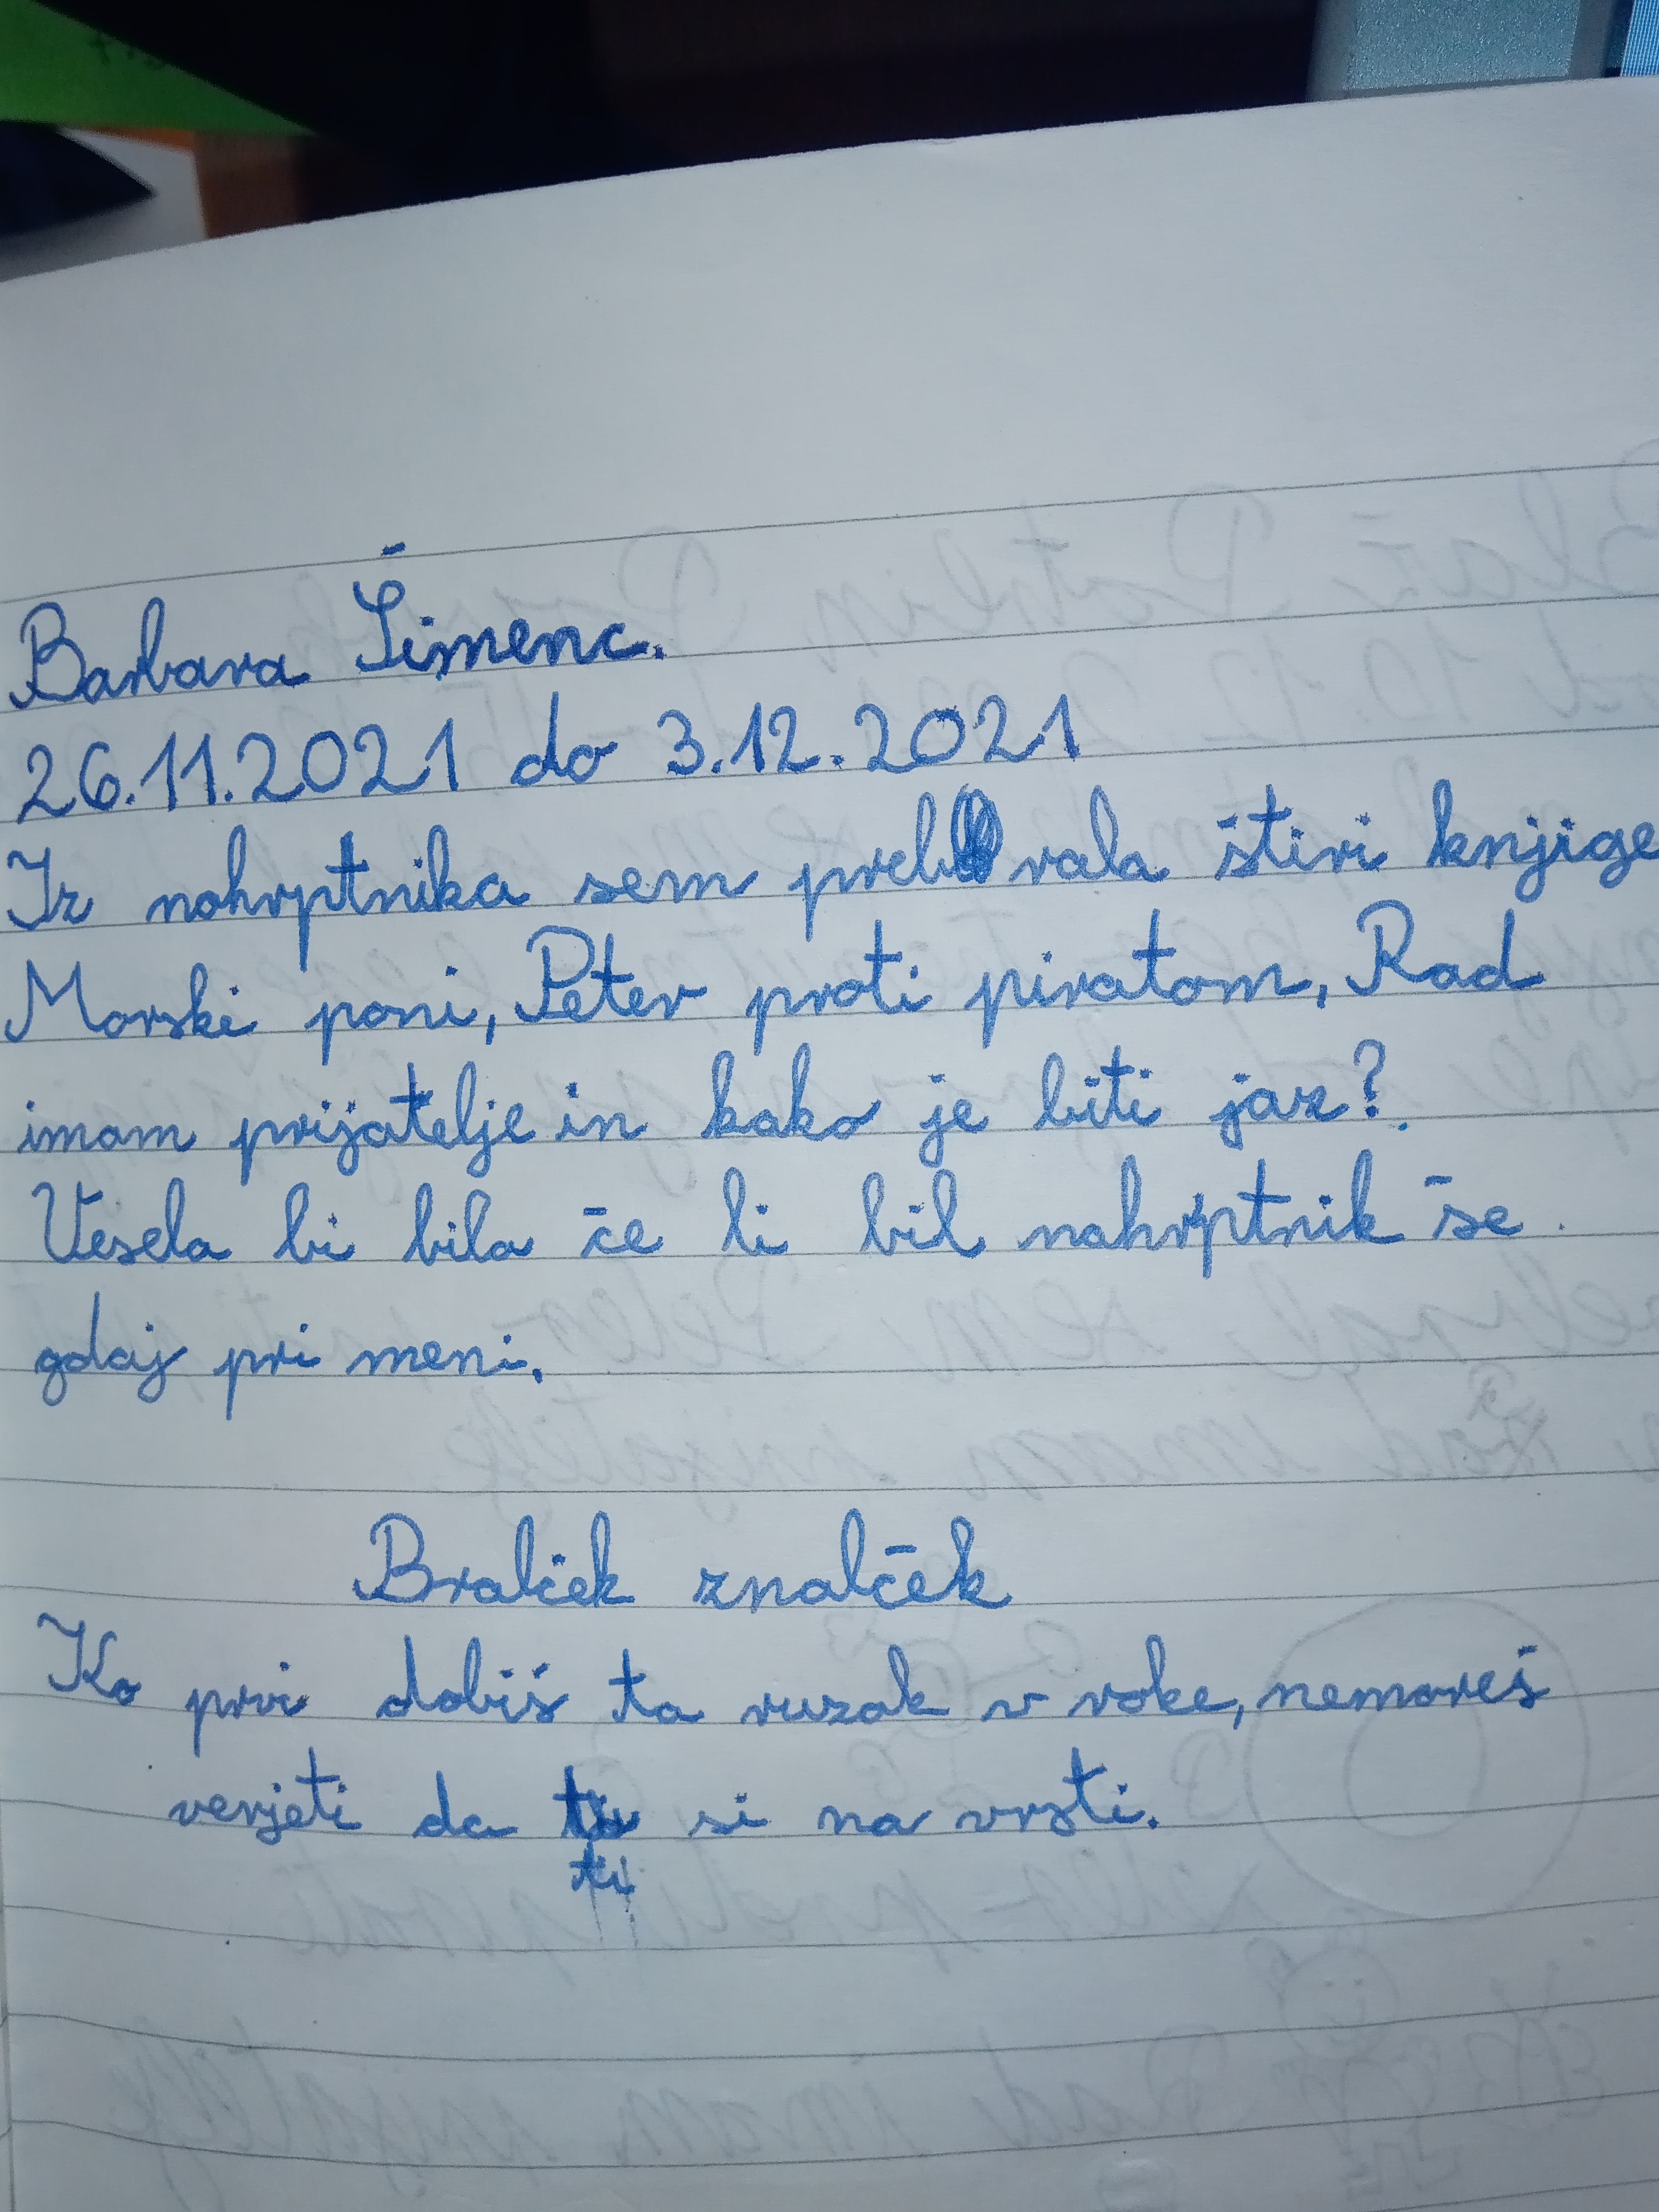 Barbara Šimenc.
26.11.2021 do 3.12.2021
Iz nahrptnika sem prebrala štiri knjige
Morski poni, Peter proti piratom, Rad
imam prijatelje in kako je biti jaz?
Vesela bi bila če bi bil nahrptnik še
gdaj pri meni.
Bralček znalček
Ko prvi dobiš ta ruzak v roke, nemoreš
verjeti da ti si na vrsti.
ti